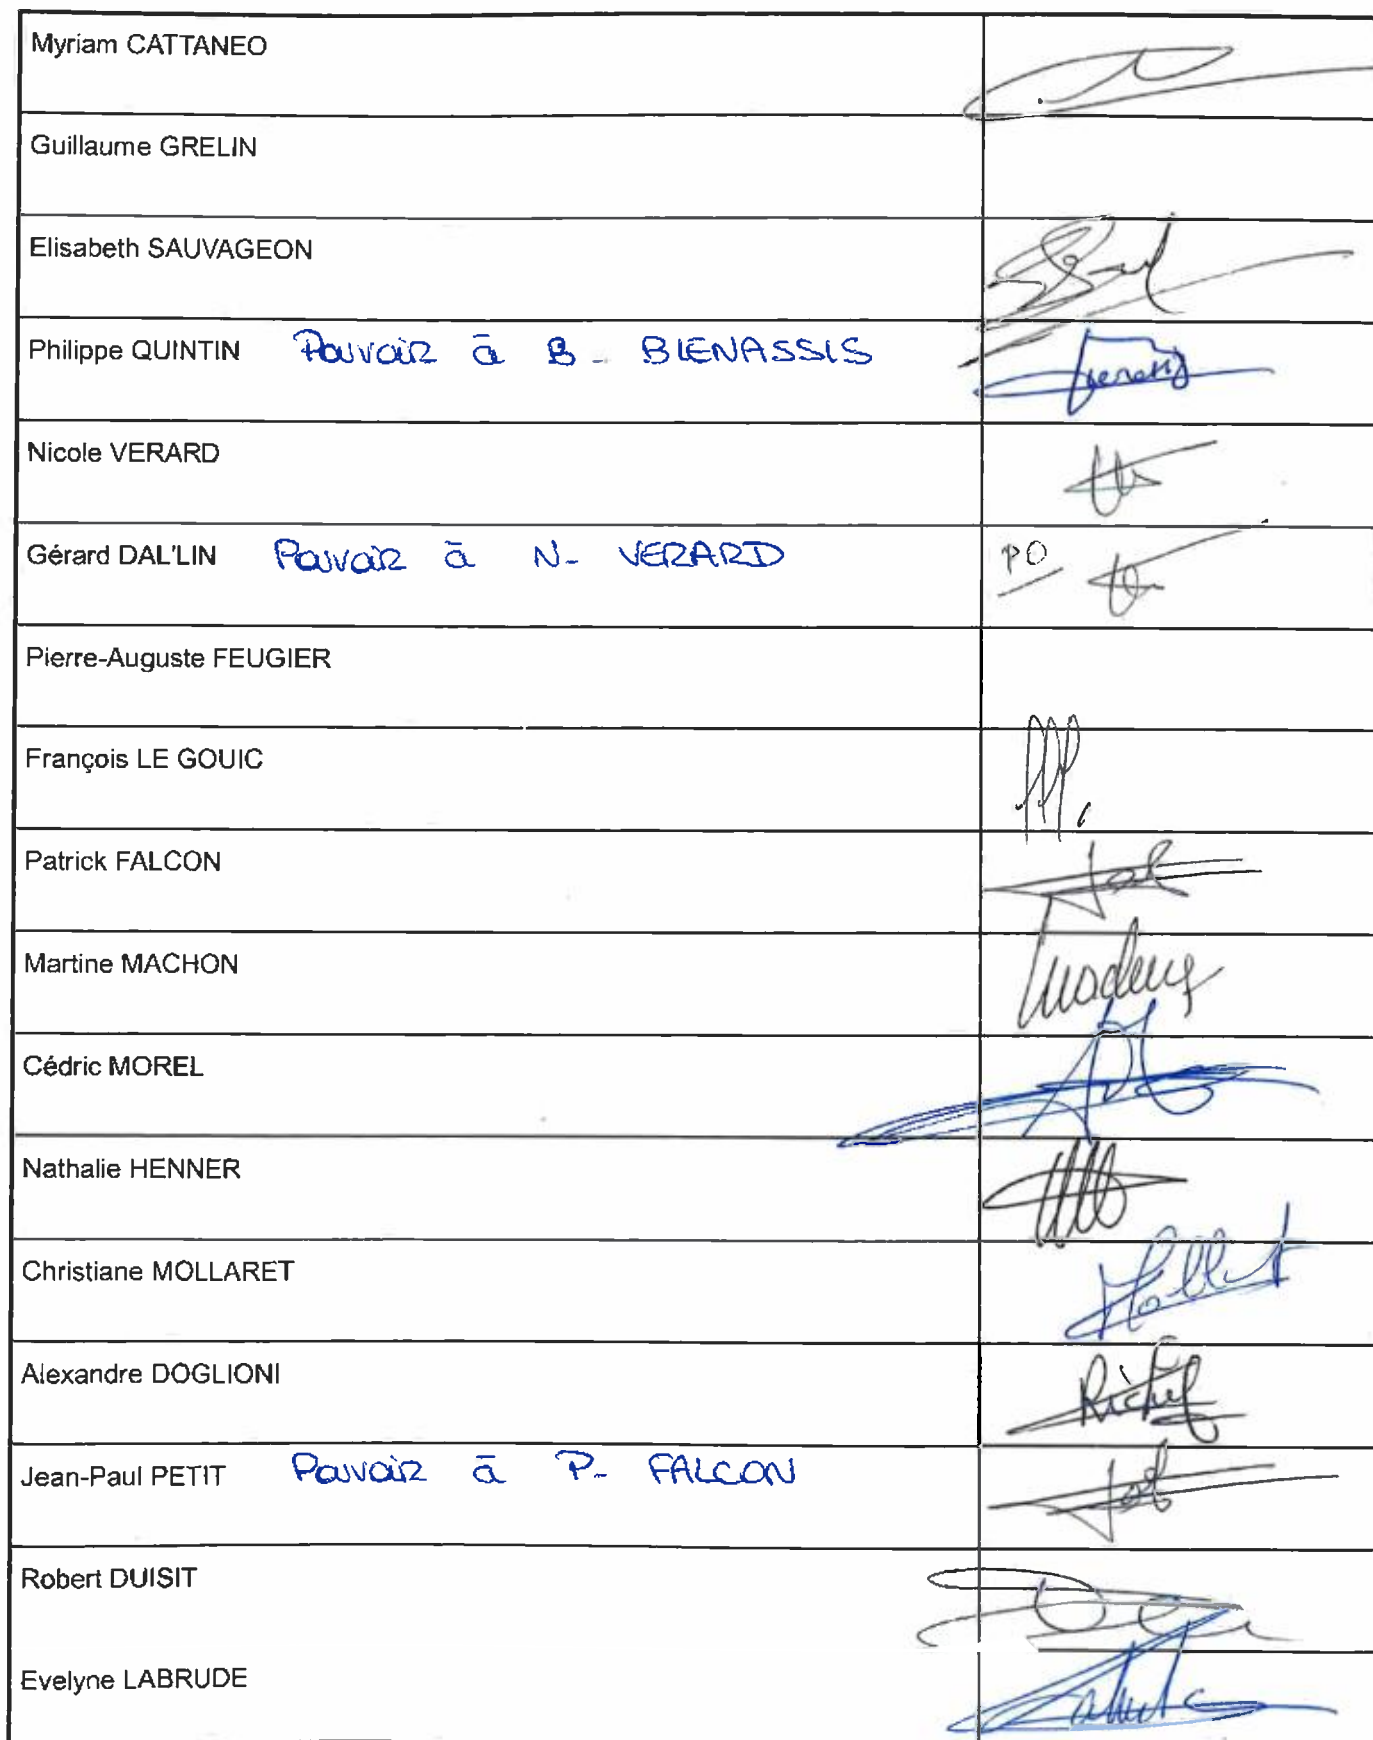 Myriam CATTANEO
Guillaume GRELIN
Elisabeth SAUVAGEON
Philippe QUINTIN Pouvoir à B- BIENASSIS
Nicole VERARD
Gérard DAL'LIN Pouvoir à N- VERARD PO
Pierre-Auguste FEUGIER
François LE GOUIC
Patrick FALCON
Martine MACHON
Cédric MOREL
Nathalie HENNER
Christiane MOLLARET
Alexandre DOGLIONI
Jean-Paul PETIT Pouvoir à P- FALCON
Robert DUISIT
Evelyne LABRUDE